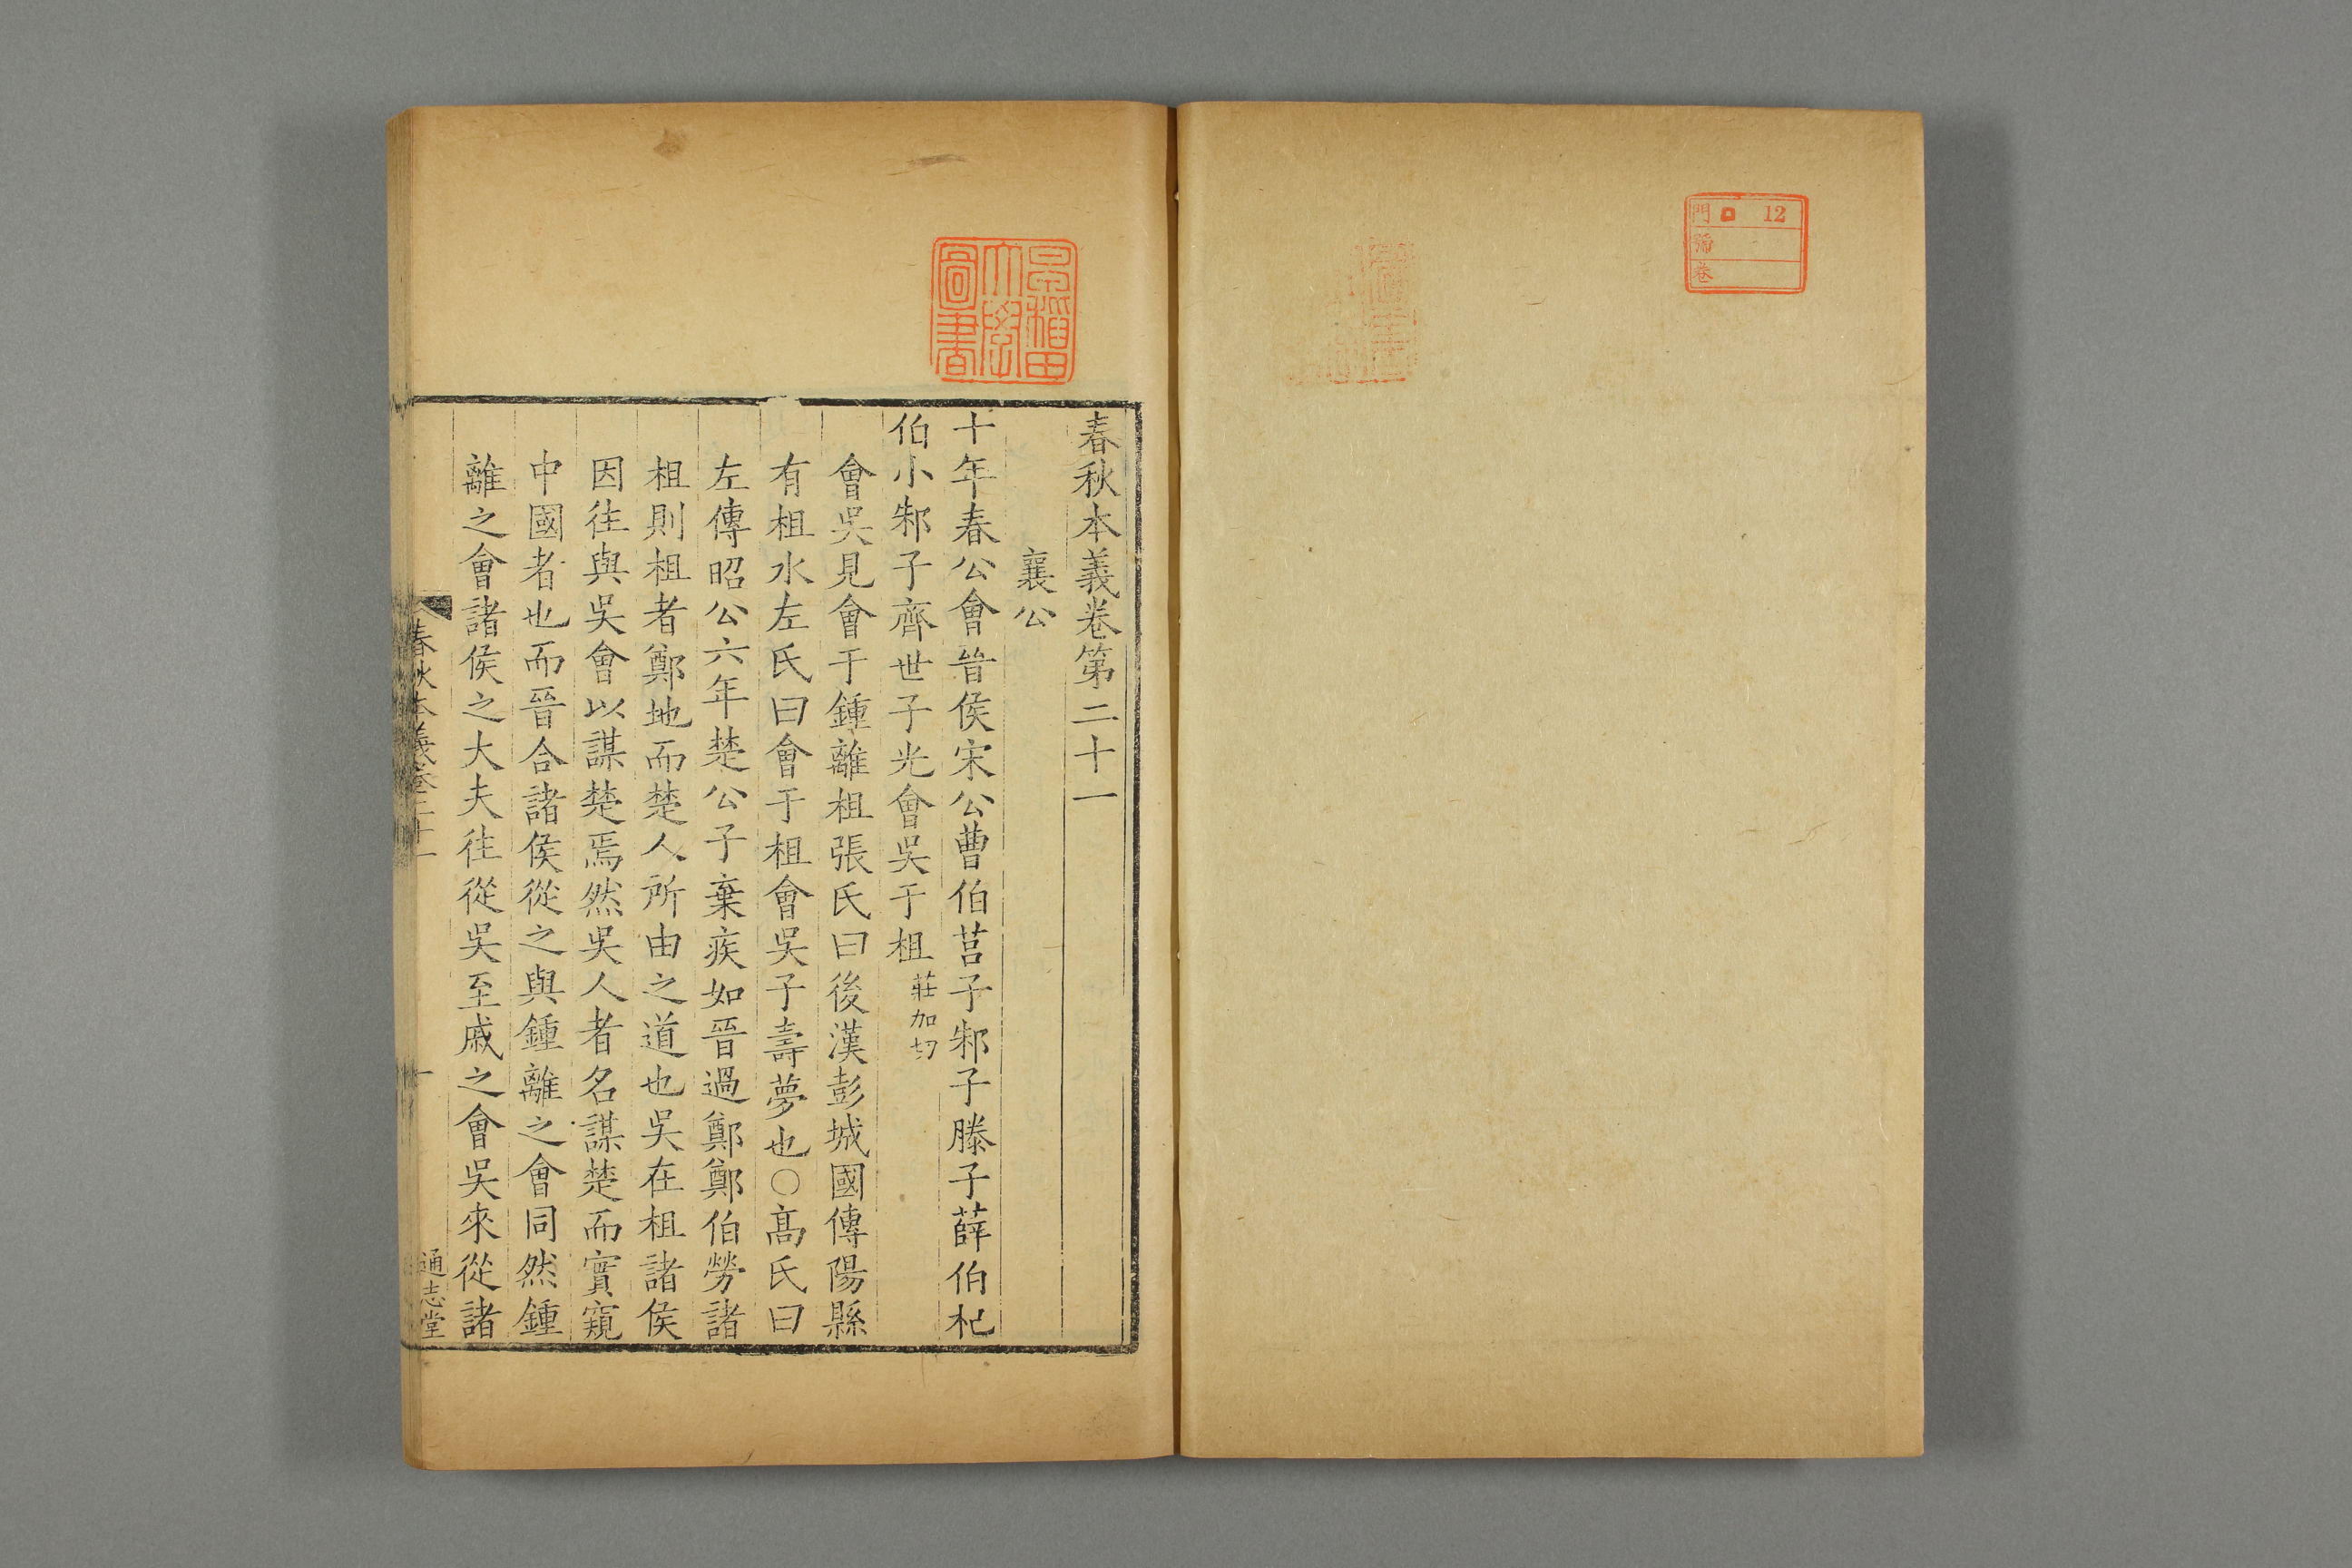 門 12
號
卷
早稲田
大學
圖書
春秋本義卷第二十一
襄公
十年春公會晉侯宋公曹伯莒子邾子滕子薛伯杞
伯小邾子齊世子光會吳于柤莊加切
會吳見會于鍾離柤張氏曰後漢彭城國傅陽縣
有柤水左氏曰會于柤會吳子壽夢也○髙氏曰
左傳昭公六年楚公子棄疾如晉過鄭鄭伯勞諸
柤則柤者鄭地而楚人所由之道也吳在柤諸侯
因徃與吳會以謀楚焉然吳人者名謀楚而實窺
中國者也而晉合諸侯從之與鍾離之會同然鍾
離之會諸侯之大夫徃從吳至戚之會吳來從諸
春秋本義卷二十一
一
通志堂